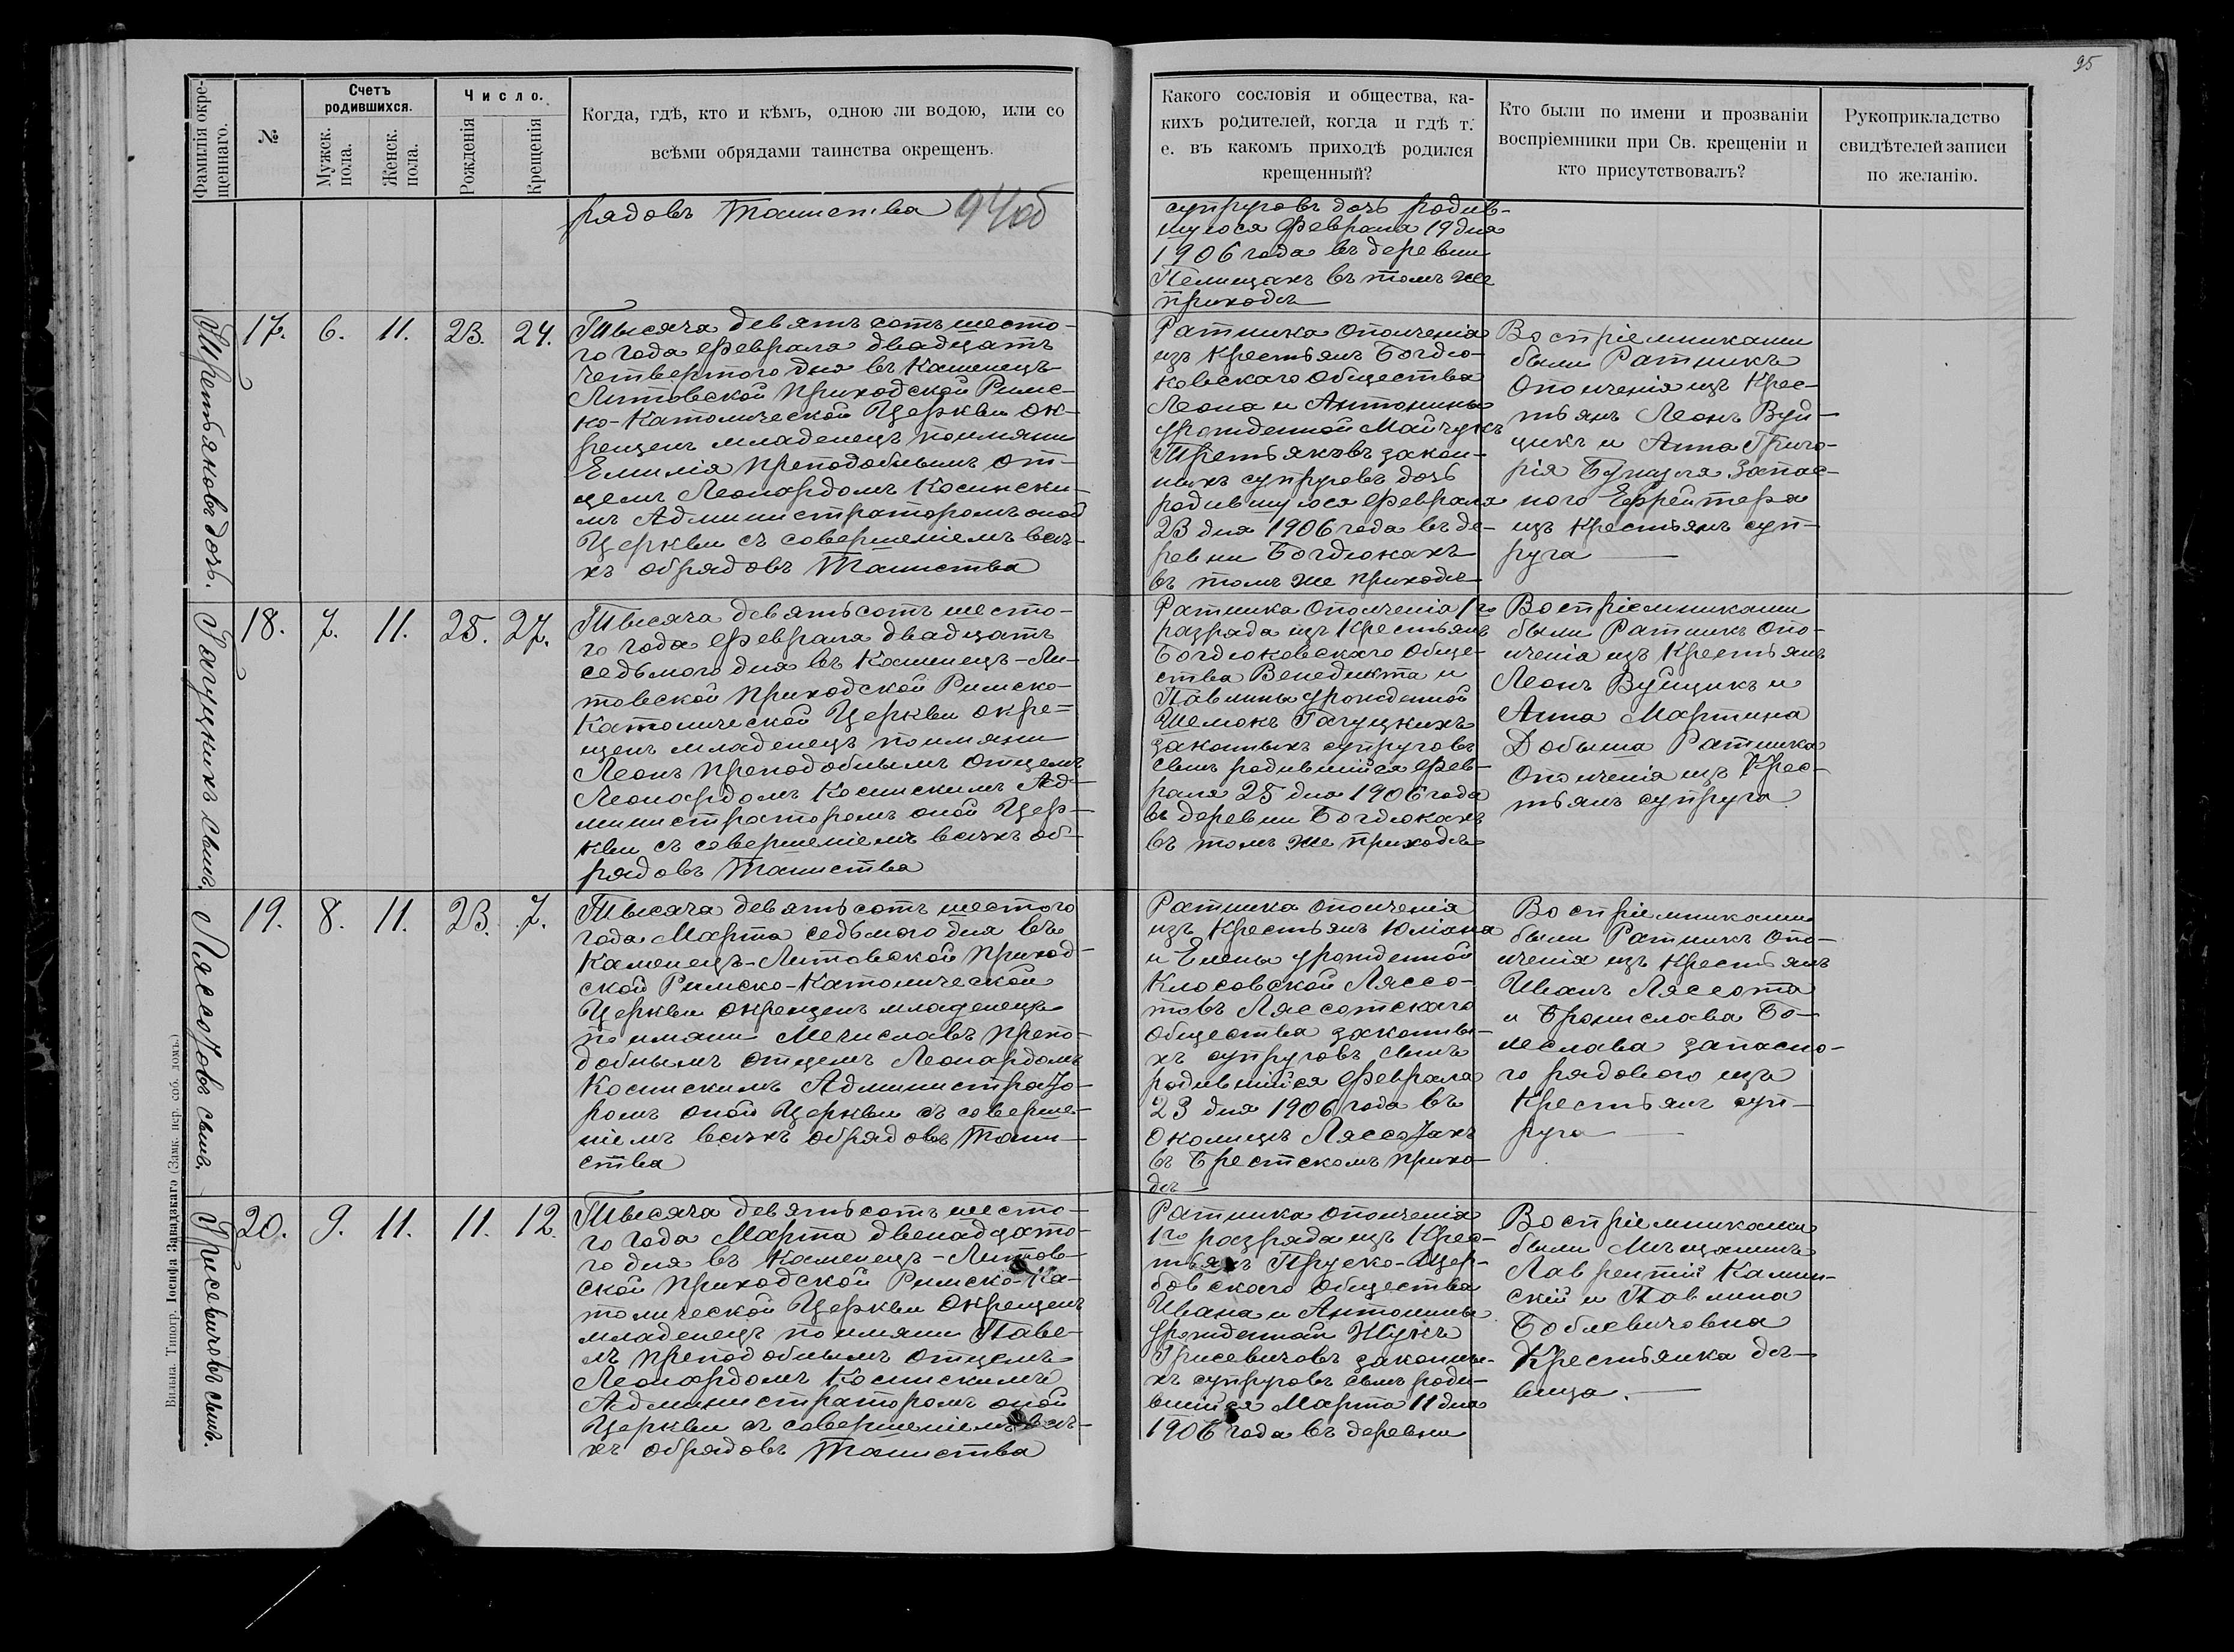 95
Фамилія окре-
щеннаго.
№
Счетъ
родившихся.
Мужск.
пола.
Женск.
пола.
Число.
Рожденія
Крещенія
Когда, гдѣ, кто и кѣмъ, одною ли водою, или со
всѣми обрядами таинства окрещенъ.
Какого сословія и общества, ка-
кихъ родителей, когда и гдѣ т.
е. въ какомъ приходѣ родился
крещенный?
Кто были по имени и прозваніи
воспріемники при Св. крещеніи и
кто присутствовалъ?
Рукоприкладство
свидѣтелей записи
по желанію.
рядовъ Таинства 94об
супруговъ дочь родив-
шуюся Февраля 19 дня
1906 года въ деревни
Пелищахъ въ томъ же
приходѣ
Третьяковъ дочь.
17. 6. 11. 23. 24.
Тысяча девятьсотъ шесто-
го года Февраля двадцать
четвертого дня въ Каменецъ-
Литовской Приходской Римс-
ко-Католической Церкви ок-
рещенъ младенецъ поимяни
Емилія преподобнымъ от-
цемъ Леонардомъ Косински-
мъ Администраторомъ оной
Церкви съ совершеніемъ всѣ-
хъ обрядовъ Таинства
Ратника ополченія
изъ Крестьянъ Богдю-
ковскаго Общества
Леона и Антонины
урожденной Майчукъ
Третьяковъ закон-
ныхъ супруговъ дочь
родившуюся Февраля
23 дня 1906 года въ де-
ревни Богдюкахъ
въ томъ же приходѣ
Воспріемниками
были Ратникъ
Ополченія изъ Крес-
тьянъ Леонъ Вуй-
цикъ и Анна Григо-
рія запас-
ного Ефрейтера
изъ Крестьянъ суп-
руга
Гагуцкихъ сынъ.
18. 7. 11. 25. 27.
Тысяча девятьсотъ шесто-
го года Февраля двадцать
седьмого дня въ Каменецъ-Ли-
товской Приходской Римско-
Католической Церкви окре-
щенъ младенецъ поимяни
Леонъ преподобнымъ отцемъ
Леонардомъ Косинскимъ Ад-
министраторомъ оной Цер-
кви съ совершеніемъ всѣхъ об-
рядовъ Таинства
Ратника Ополченія 1го
разряда изъ Крестьянъ
Богдюковскаго Обще-
ства Венедикта и
Павлины урожденной
Шемокъ Гагуцкихъ
законныхъ супруговъ
сынъ родившійся Фев-
раля 25 дня 1906 года
въ деревни Богдюкахъ
въ томъ же приходѣ
Воспріемниками
были Ратникъ Опо-
лченія изъ Крестьянъ
Леонъ Вуйцикъ и
Анна Мартина
Добыша Ратника
Ополченія изъ Крес-
тьянъ супруга
Лясcотовъ сынъ.
19. 8. 11. 23. 7.
Тысяча девятьсотъ шестого
года Марта седьмого дня въ
Каменецъ-Литовской Приход-
ской Римско-Католической
Церкви окрещенъ младенецъ
по имяни Мечиславъ препо-
добнымъ отцемъ Леонардомъ
Косинскимъ Администрато-
ромъ оной Церкви съ соверше-
ніемъ всѣхъ обрядовъ Таин-
ства
Ратника Ополченія
изъ Крестьянъ Юліана
и Елены урожденной
Клосовской Ляссо-
товъ Ляссотскаго
Общества законны-
хъ супруговъ сынъ
родившійся Февраля
23 дня 1906 года въ
Околицѣ Ляссотахъ
въ Брестскомъ прихо-
дѣ
Воспріемниками
были Ратникъ Опо-
лченія изъ Крестьянъ
Иванъ Ляссота
и Бронислава Бо-
леслава запасно-
го рядового изъ
Крестьянъ суп-
руга
Грисевичовъ сынъ.
20. 9. 11. 11. 12.
Тысяча девятьсотъ шесто-
го года Марта двенадцато-
го дня въ Каменецъ-Литов-
ской Приходской Римско-Ка-
толической Церкви Окрещенъ
младенецъ поимяни Паве-
лъ преподобнымъ отцемъ
Леонардомъ Косинскимъ
Администраторомъ оной
Церкви съ совершеніемъ всѣ-
хъ обрядовъ Таинства
Ратника Ополченія
1го разряда изъ Крес-
тьянъ Пруско-Щер-
бовскаго Общества
Ивана и Антонины
урожденной Жукъ
Грисевичовъ законны-
хъ супруговъ сынъ роди-
вшійся Марта 11 дня
1906 года въ деревни
Воспріемниками
были Мѣщанинъ
Лаврентій Камин-
скій и Павлина
Боблевичовна
Крестьянка дѣ-
вица.
Вильна. Типогр. Іосифа Завадзкаго (Замк. пер. соб. домъ.)